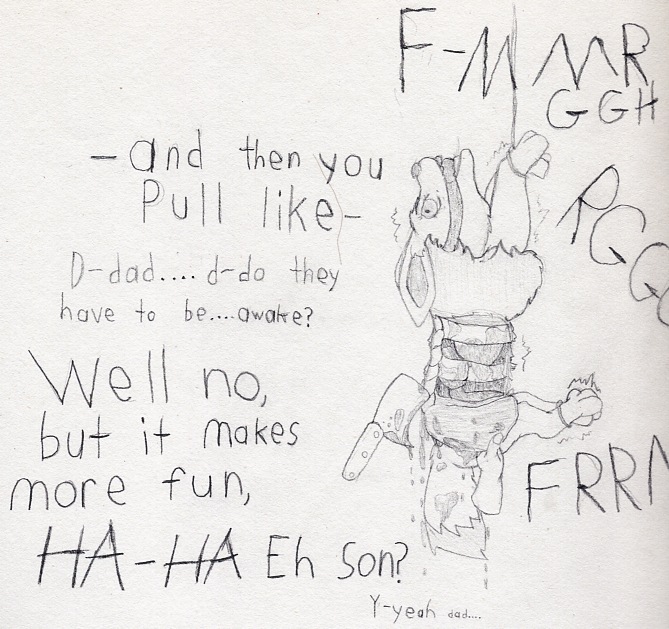 F-MMMR
GGH
-and then you
Pull like-
RGGG
D-dad.... d-do they
have to be....awake?
Well no,
but it makes
more fun,
FRRM
HA-HA Eh son?
Y-yeah dad....